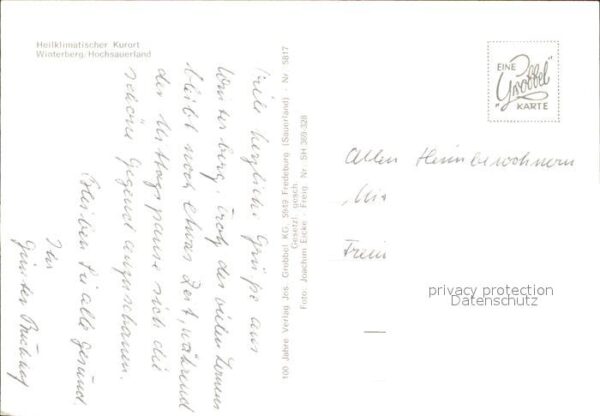 Heilklimatischer Kurort
Winterberg, Hochsauerland
Viele herzliche Grüße aus
Winterberg. Trotz des vielen Lernens
bleibt noch etwas Zeit, während
der Mittagspause sich die
schöne Gegend anzuschauen.
Bleiben Sie alle gesund.
Ihr
Günter
100 Jahre Verlag Jos. Grobbel KG, 5949 Fredeburg (Sauerland) · Nr. 5817
Gesetzl. gesch.
Foto: Joachim Eicke · Freig. Nr. SH 369-328
EINE
"Grobbel"
KARTE
Allen Heimbewohnern
privacy protection
Datenschutz